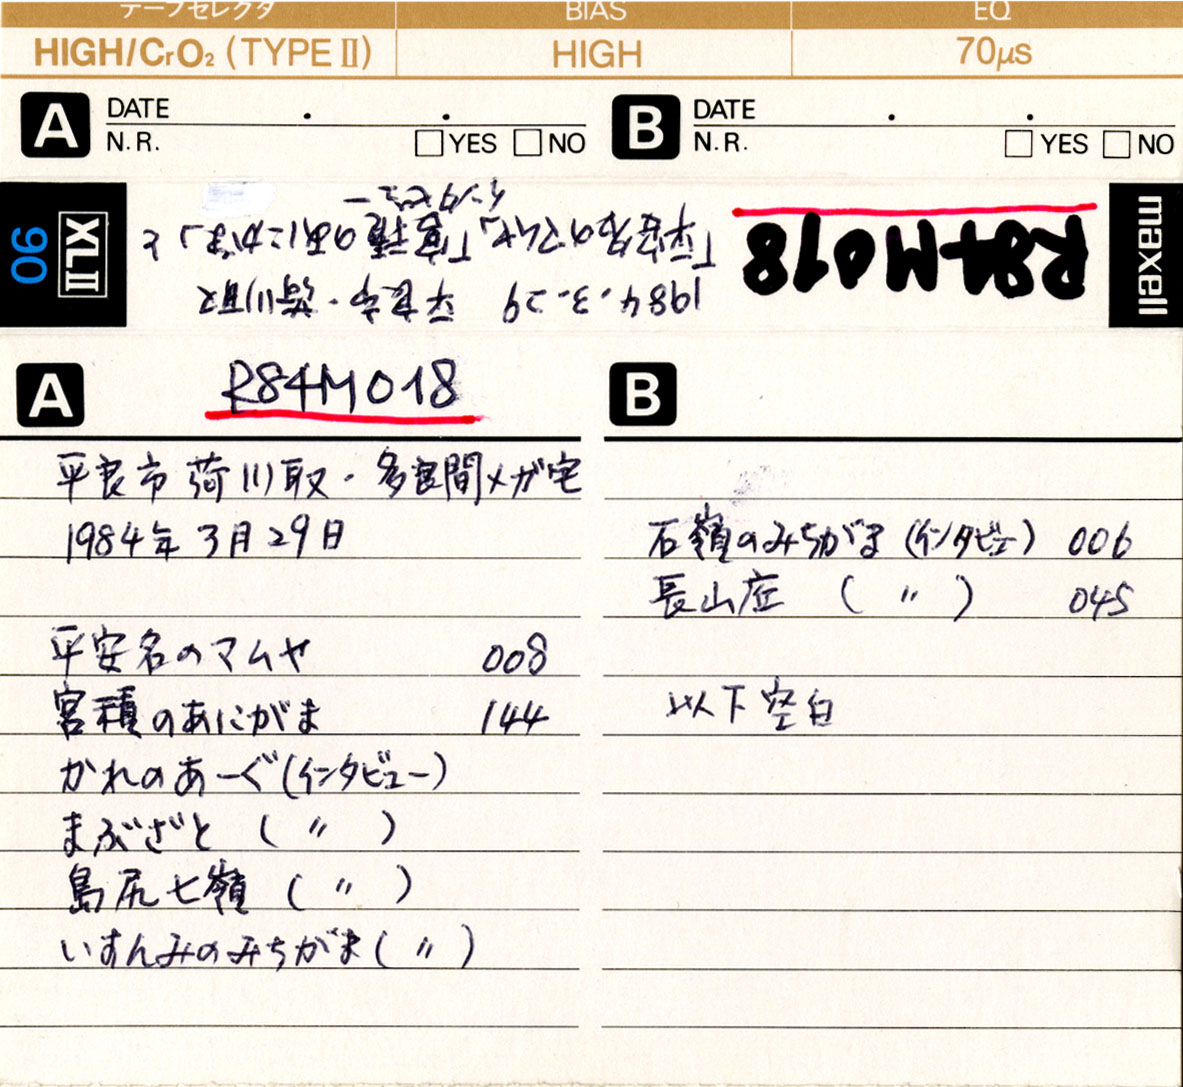 テープセレクタ BIAS EQ
HIGH/CrO₂ (TYPE II) HIGH 70μs
A DATE . . B DATE . .
N.R. YES NO N.R. YES NO
maxell
R84M018
1984.3.29 平良市・荷川取
「平安名のマムヤ」「宮積のあにがま」と
インタビュー
XLII
90
A R84M018
平良市荷川取・多良間メガ宅
1984年3月29日
平安名のマムヤ 008
宮積のあにがま 144
かれのあーぐ(インタビュー)
まぶざと ( 〃 )
島尻七嶺 ( 〃 )
いすんみのみちがま ( 〃 )
B
石嶺のみちがま (インタビュー) 006
長山底 ( 〃 ) 045
以下空白